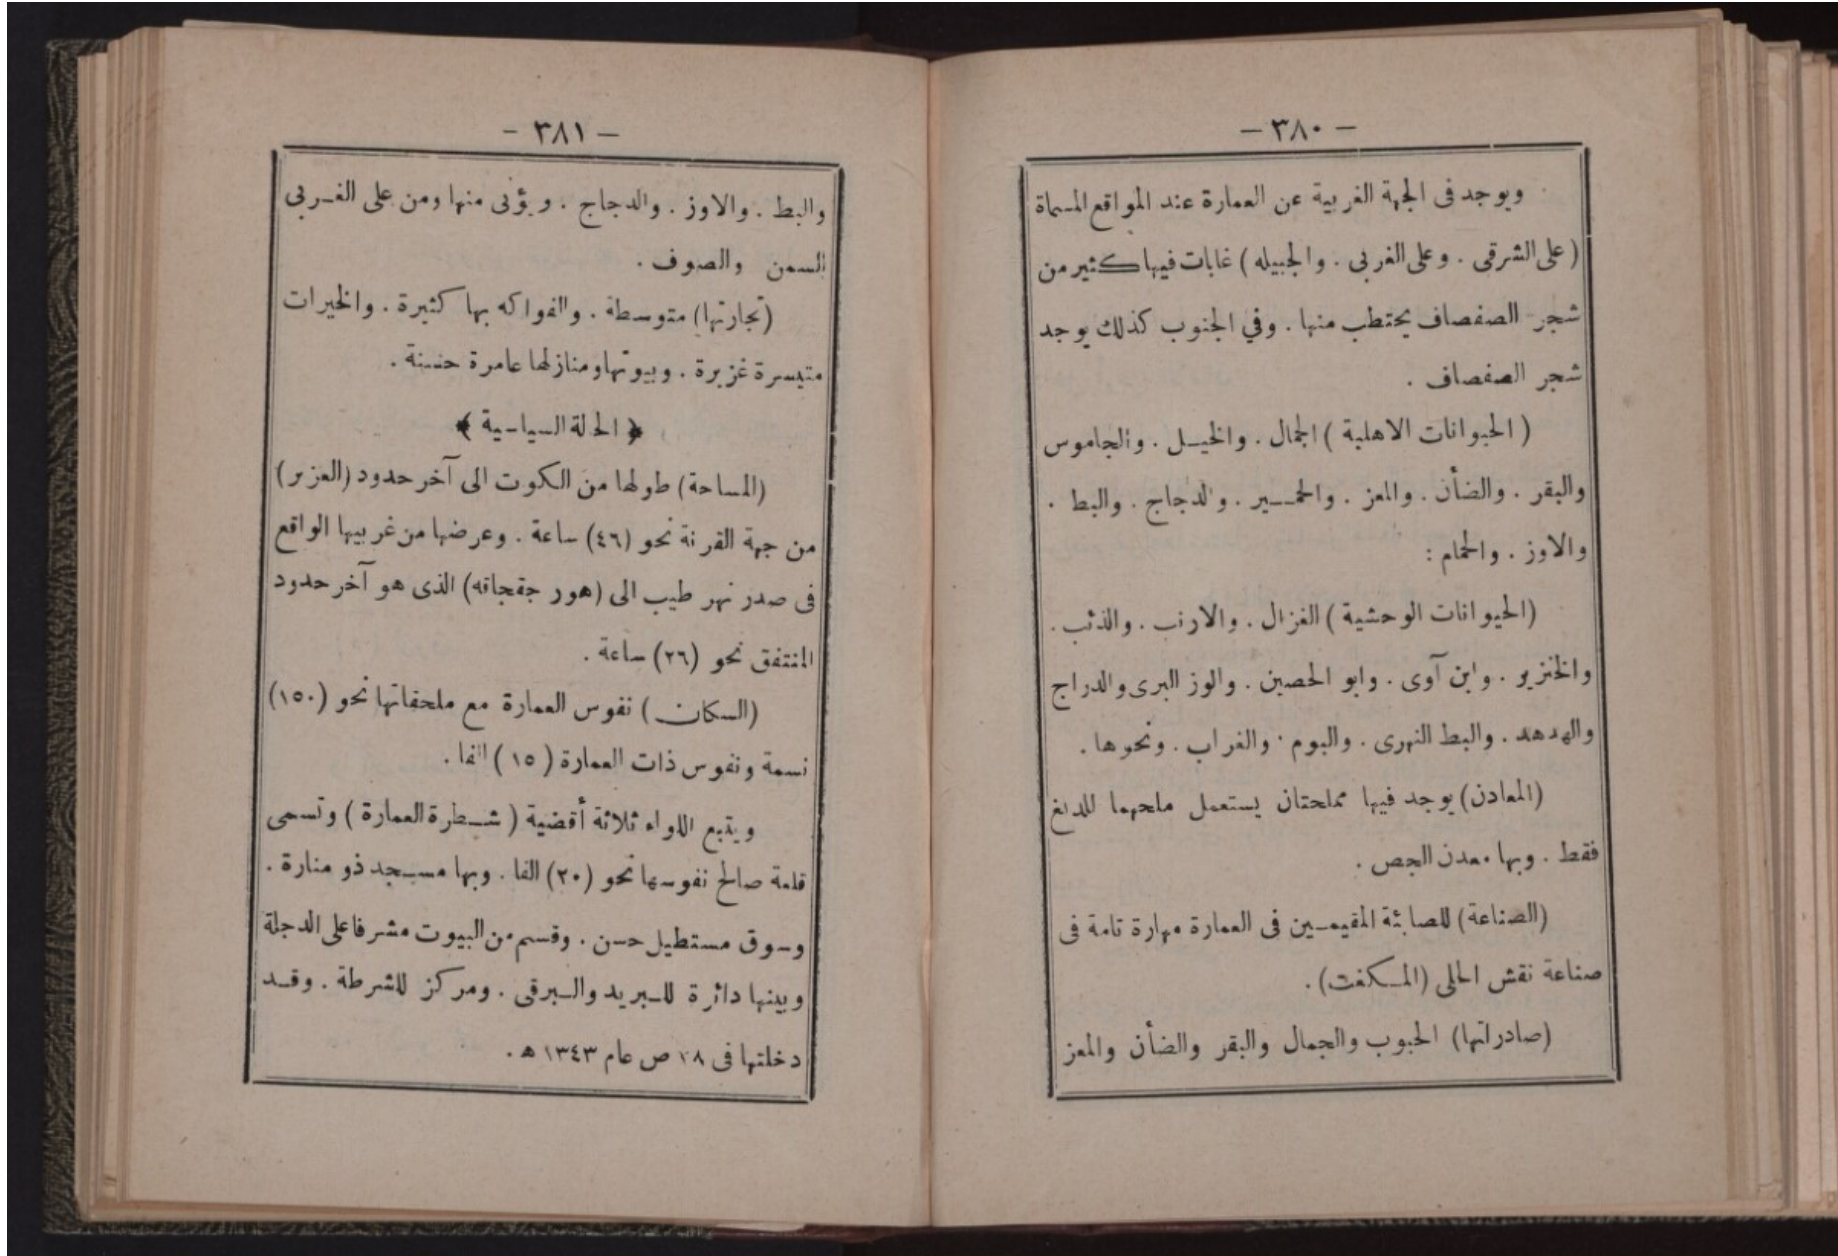 — ٣٨٠ —
ويوجد فى الجهة الغربية عن العمارة عند المواقع المسماة
( على الشرقى . وعلى الغربى . والجبيله ) غابات فيها كثير من
شجر الصفصاف يحتطب منها . وفي الجنوب كذلك يوجد
شجر الصفصاف .
( الحيوانات الاهلية ) الجمال . والخيل . والجاموس
والبقر . والضأن . والمعز . والحمير . والدجاج . والبط .
والاوز . والحمام :
(الحيوانات الوحشية ) الغزال . والارنب . والذئب .
والخنزير . وابن آوى . وابو الحصين . والوز البرى والدراج
والهدهد . والبط النهرى . والبوم . والغراب . ونحوها .
(المعادن) يوجد فيها مملحتان يستعمل ملحهما للدبغ
فقط . وبها معدن الجص .
(الصناعة) للصابئة المقيمين فى العمارة مهارة تامة فى
صناعة نقش الحلى (المكفت) .
(صادراتها) الحبوب والجمال والبقر والضأن والمعز
— ٣٨١ —
والبط . والاوز . والدجاج . ويؤتى منها ومن على الغربى
السمن والصوف .
(تجارتها) متوسطة . والفواكه بها كثيرة . والخيرات
متيسرة غزيرة . وبيوتها ومنازلها عامرة حسنة .
﴿ الحالة السياسية ﴾
(المساحة) طولها من الكوت الى آخر حدود (العزير)
من جهة القرنة نحو (٤٦) ساعة . وعرضها من غربيها الواقع
فى صدر نهر طيب الى (هور جفجافه) الذى هو آخر حدود
المنتفق نحو (٢٦) ساعة .
(السكان) نفوس العمارة مع ملحقاتها نحو (١٥٠)
نسمة ونفوس ذات العمارة ( ١٥ ) الفا .
ويتبع اللواء ثلاثة أقضية ( شطرة العمارة ) وتسمى
قلعة صالح نفوسها نحو (٢٠) الفا . وبها مسجد ذو منارة .
وسوق مستطيل حسن . وقسم من البيوت مشرفا على الدجلة
وبينها دائرة للبريد والبرقى . ومركز للشرطة . وقد
دخلتها فى ٢٨ ص عام ١٣٤٣ ه .